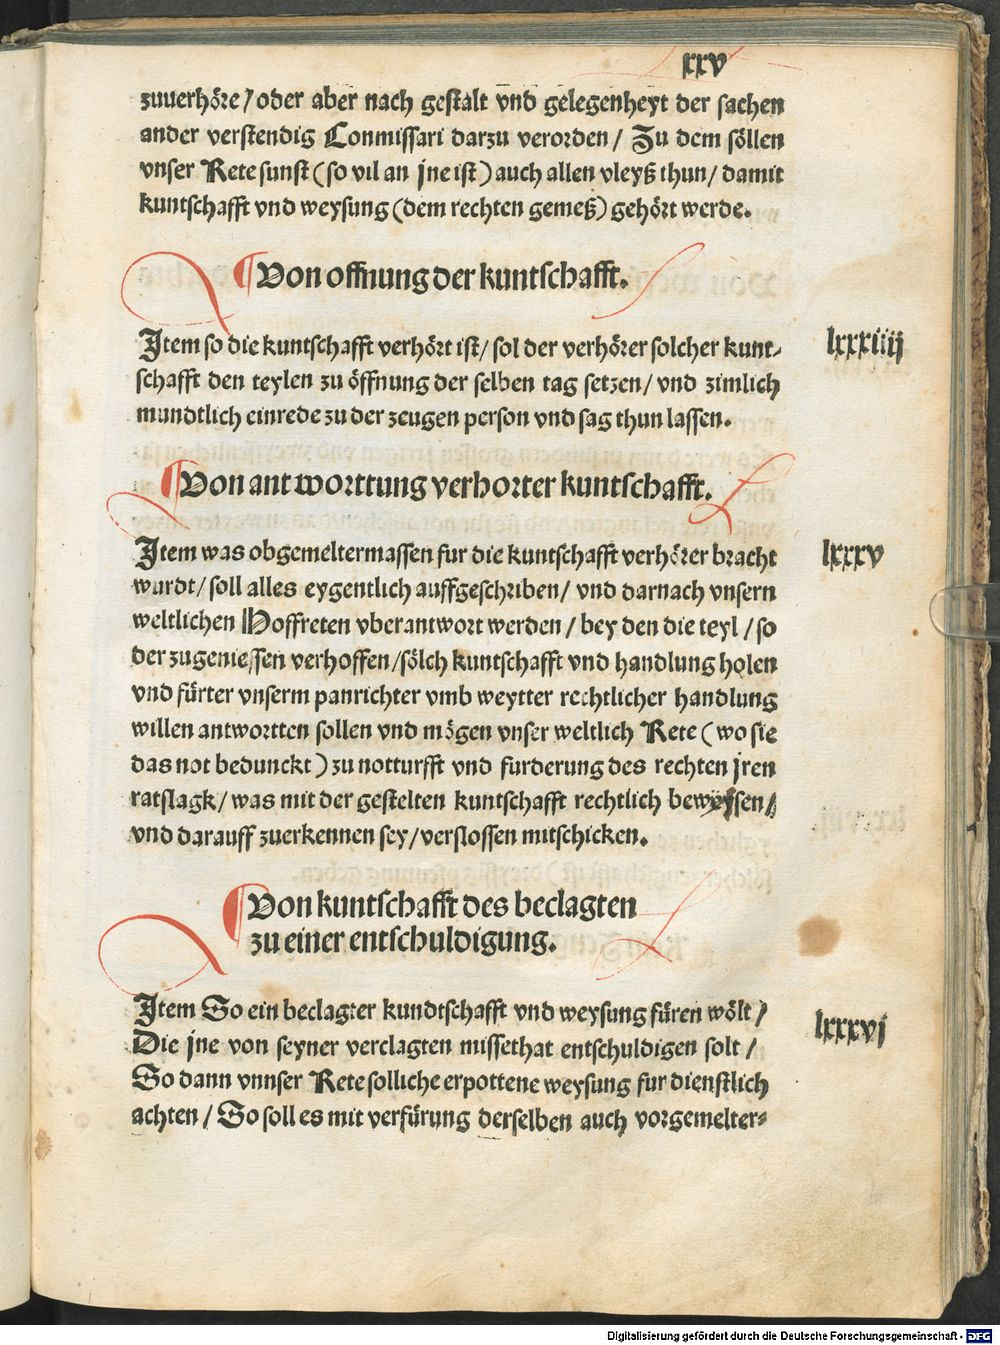 xxv
zuuerhöre/ oder aber nach gestalt vnd gelegenheyt der sachen
ander verstendig Conmissari darzu verorden/ Zu dem söllen
vnser Rete sunst (so vil an jne ist) auch allen vleyß thun/ damit
kuntschafft vnd weysung (dem rechten gemeß) gehört werde.
¶ Von offnung der kuntschafft.
Item so die kuntschafft verhört ist/ sol der verhörer solcher kunt⸗
lxxxiiij
schafft den teylen zu öffnung der selben tag setzen/ vnd zimlich
mundtlich einrede zu der zeugen person vnd sag thun lassen.
¶ Von antworttung verhorter kuntschafft.
Item was obgemeltermassen fur die kuntschafft verhörer bracht
lxxxv
wurdt/ soll alles eygentlich auffgeschriben/ vnd darnach vnsern
weltlichen Hoffreten vberantwort werden/ bey den die teyl/ so
der zugeniessen verhoffen/ sölch kuntschafft vnd handlung holen
vnd fürter vnserm panrichter vmb weytter rechtlicher handlung
willen antwortten sollen vnd mögen vnser weltlich Rete (wo sie
das not bedunckt) zu notturfft vnd furderung des rechten jren
ratslagk/ was mit der gestelten kuntschafft rechtlich beweysen/
vnd darauff zuerkennen sey/ verslossen mitschicken.
¶ Von kuntschafft des beclagten
zu einer entschuldigung.
Item So ein beclagter kundtschafft vnd weysung füren wölt/
lxxxvj
Die jne von seyner verclagten missethat entschuldigen solt/
So dann vnnser Rete solliche erpottene weysung fur dienstlich
achten/ So soll es mit verfürung derselben auch vorgemelter⸗
Digitalisierung gefördert durch die Deutsche Forschungsgemeinschaft - DFG